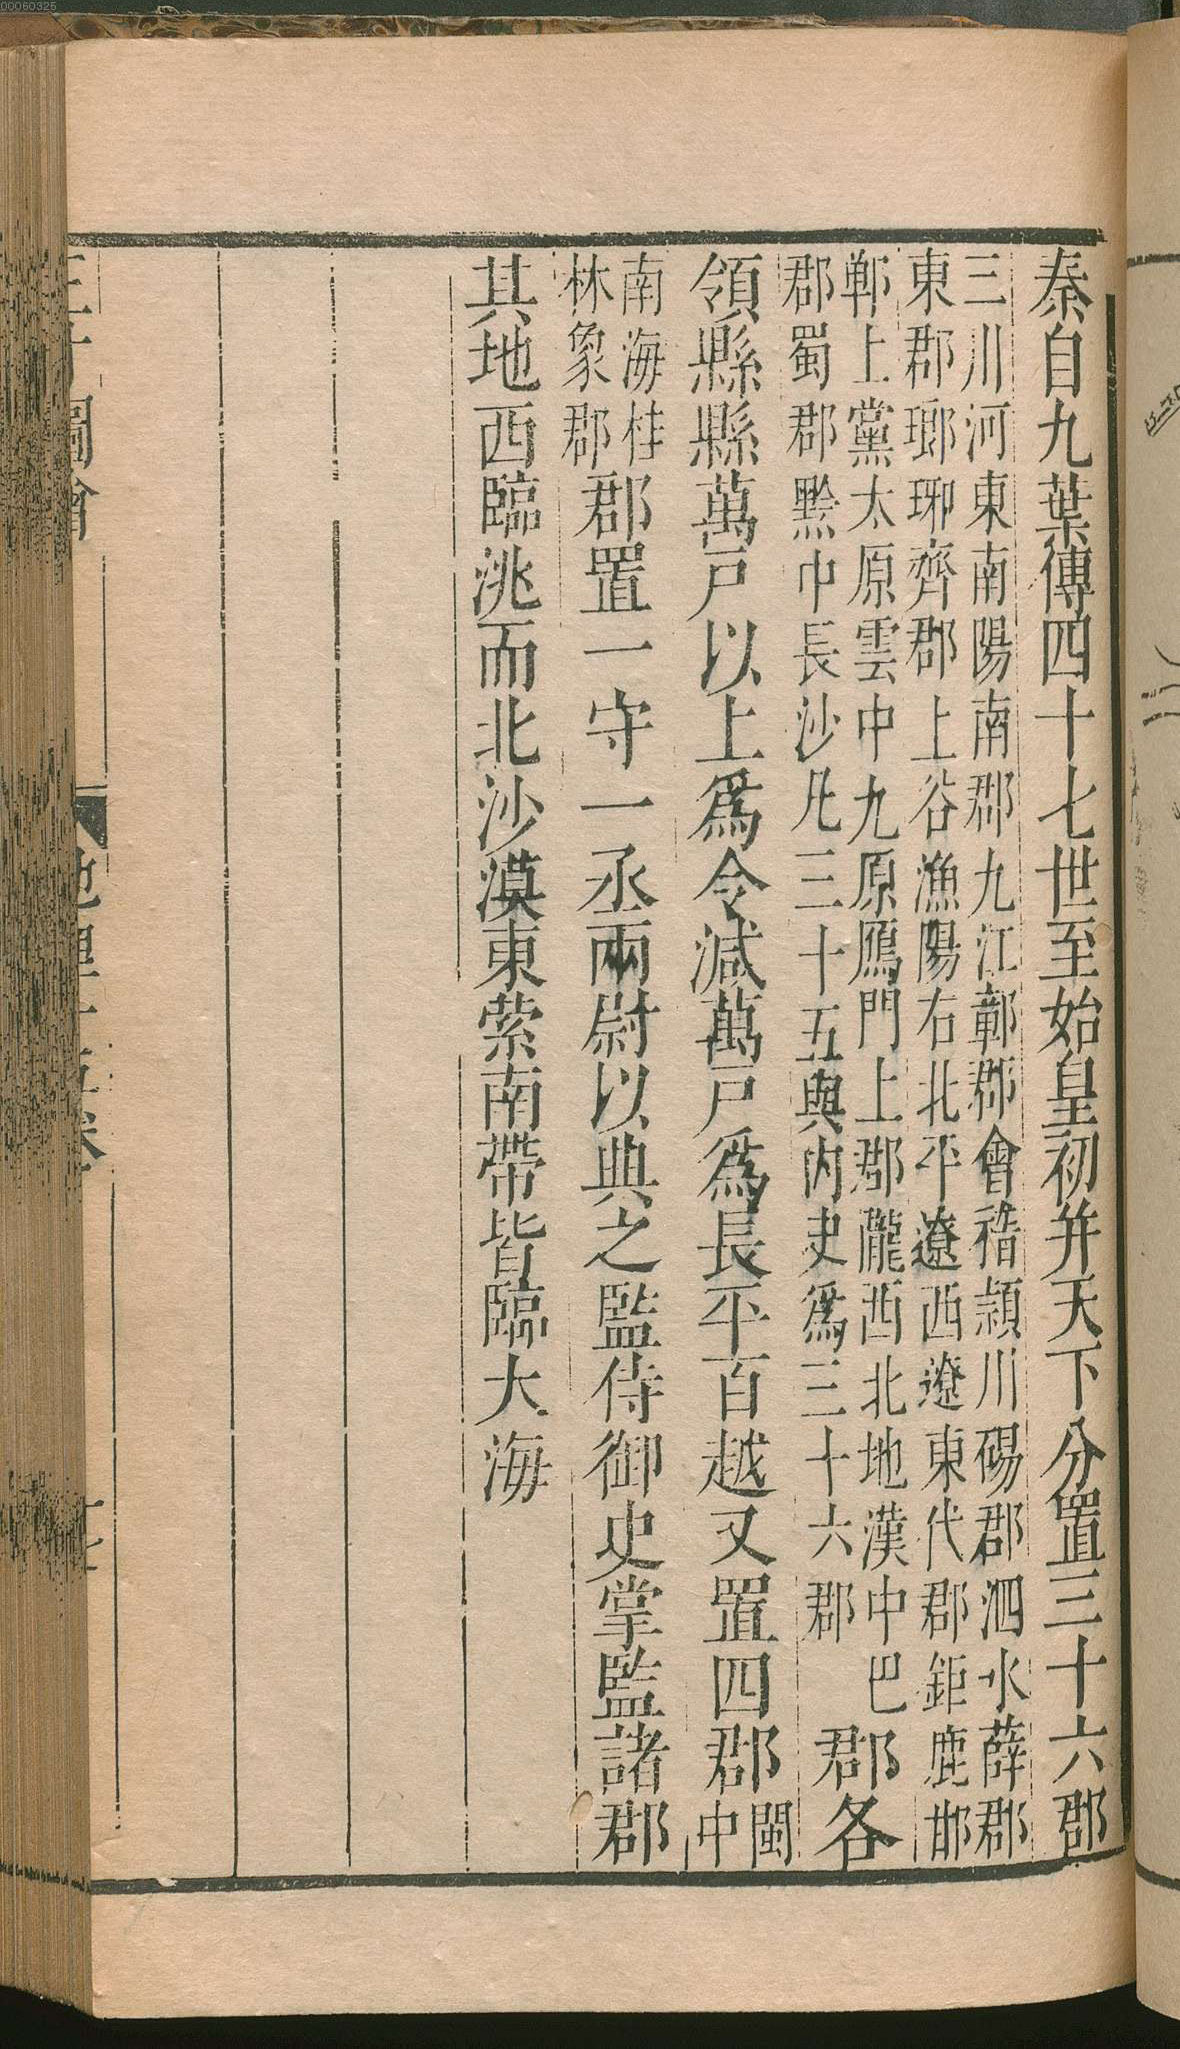 00060325
秦自九葉傳四十七世至始皇初并天下分置三十六郡
三川河東南陽南郡九江鄣郡會稽潁川碭郡泗水薛郡
東郡瑯琊齊郡上谷漁陽右北平遼西遼東代郡鉅鹿邯
鄲上黨太原雲中九原鴈門上郡隴西北地漢中巴
郡蜀郡黔中長沙凡三十五與內史爲三十六郡
郡各
領縣縣萬戶以上爲令減萬戶爲長平百越又置四郡
閩
中
南海桂
林象郡
郡置一守一丞兩尉以典之監侍御史掌監諸郡
其地西臨洮而北沙漠東縈南帶皆臨大海